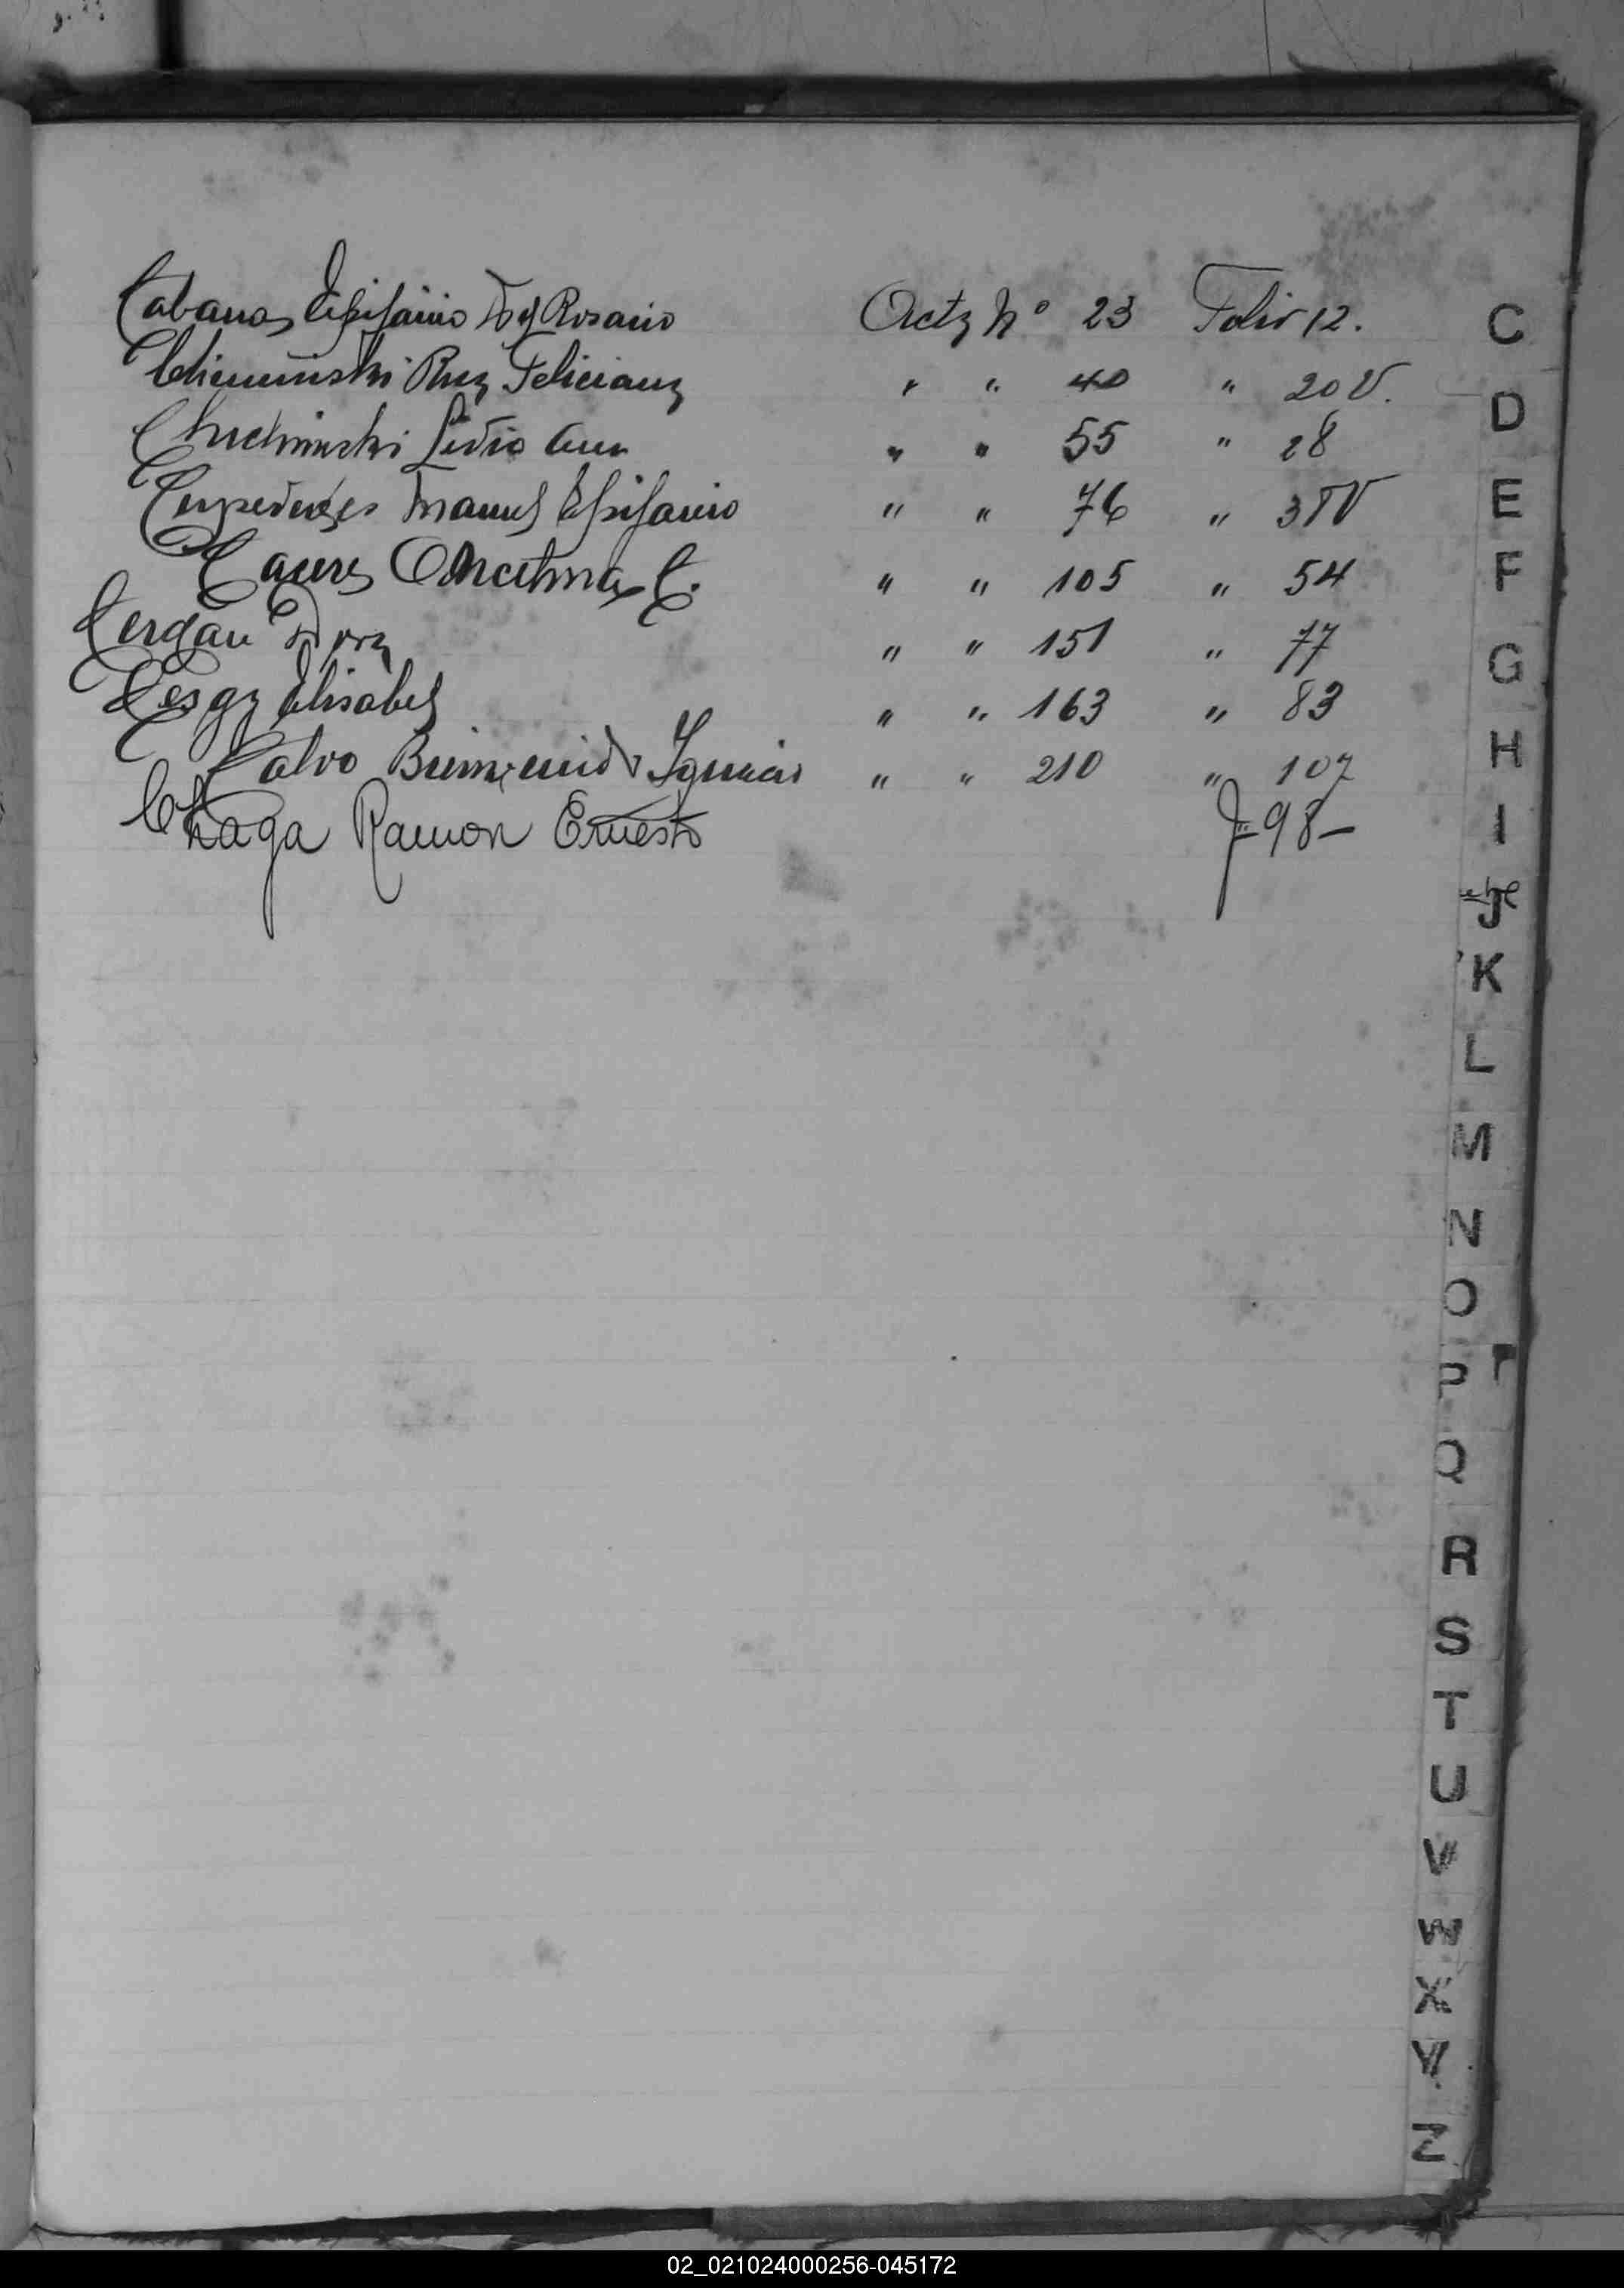 Cabanas Epifanio Del Rosario Acta Nº 23 Folio 12.
Chieminski Rosa Feliciana " " 40 " 20 V.
Chicheminski Lidia Ana " " 55 " 28
Manuel Epifanio " " 76 " 38 V
Caceres Anselma C. " " 105 " 54
Cerdan Dora " " 151 " 77
Elisabel " " 163 " 83
Calvo Bienvenido Ignacio " " 210 " 107
Chaga Ramon Ernesto F= 98 -
C
D
E
F
G
H
I
J
K
L
M
N
O
P
Q
R
S
T
U
V
W
X
Y
Z
02_021024000256-045172